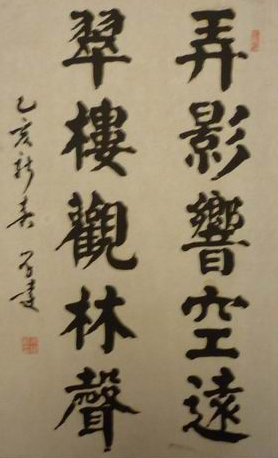 弄影響空遠
翠樓觀林聲
乙亥新春